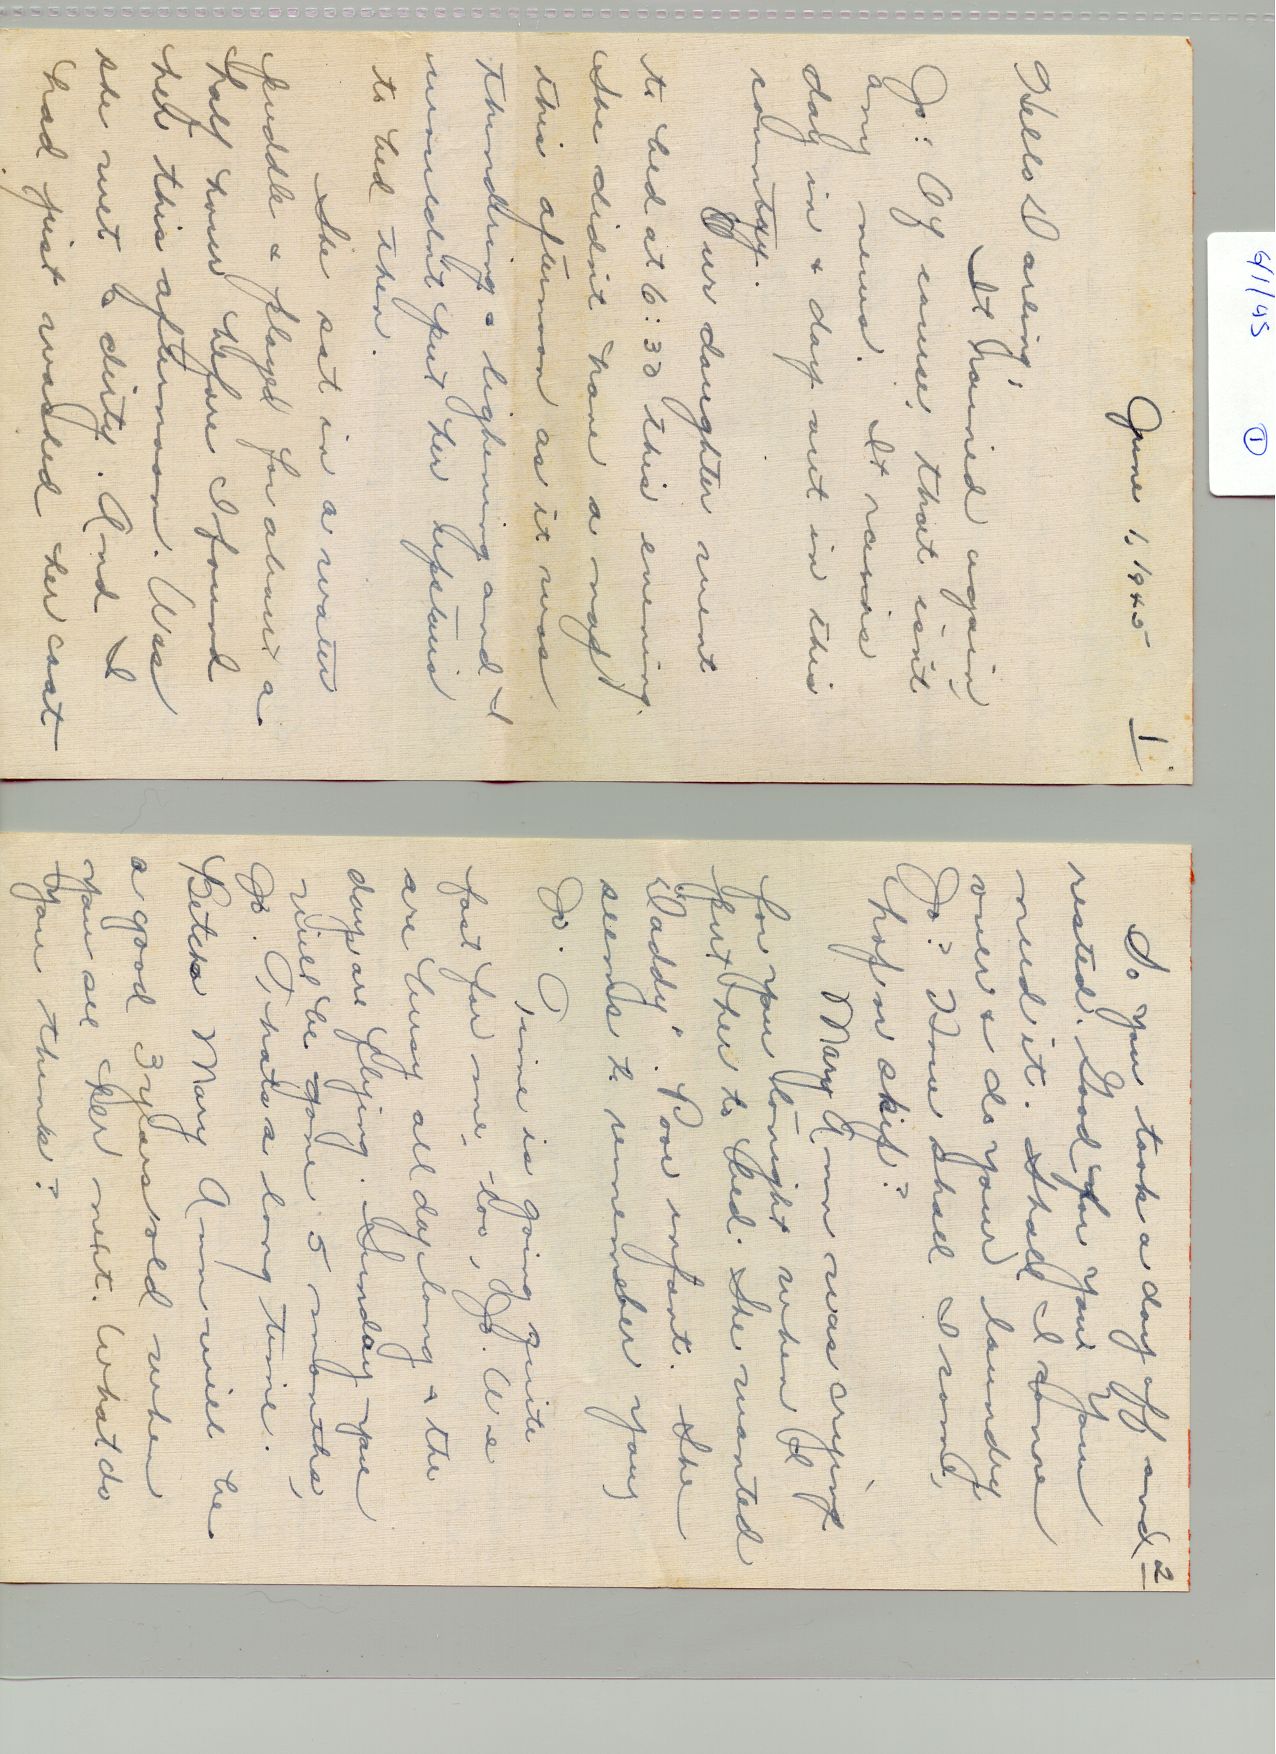 6/1/45 ①
June 1, 1945
1.
Hello Darling,
It rained again,
Jo. Of cause, that isn't
any news. It rains
day in & day out in this
country.
Our daughter went
to bed at 6:30 this evening.
She didn't have a nap
this afternoon as it was
thundring & lighening and I
wouldn't put her upstairs
to bed then.
She sat in a water
puddle & played for about a
half hour before I found
her this afternoon. Was
she wet & dirty. And I
had just washed her coat
2
So you took a day off and
rested. Good for you. You
need it. Shall I come
over & do your laundry,
Jo? How shall I come,
hop or skip?
Mary Ann was crying
for you tonight when I
put her to bed. She wanted
"Daddy". Poor infant. She
seems to remember you,
Jo. Time is going quite
fast for me, too, Jo. We
are busy all day long & the
days are flying. Sunday you
will be gone 5 months,
Jo. Thats a long time.
Betcha Mary Ann will be
a good 3 years old when
you see her next. What do
you think?